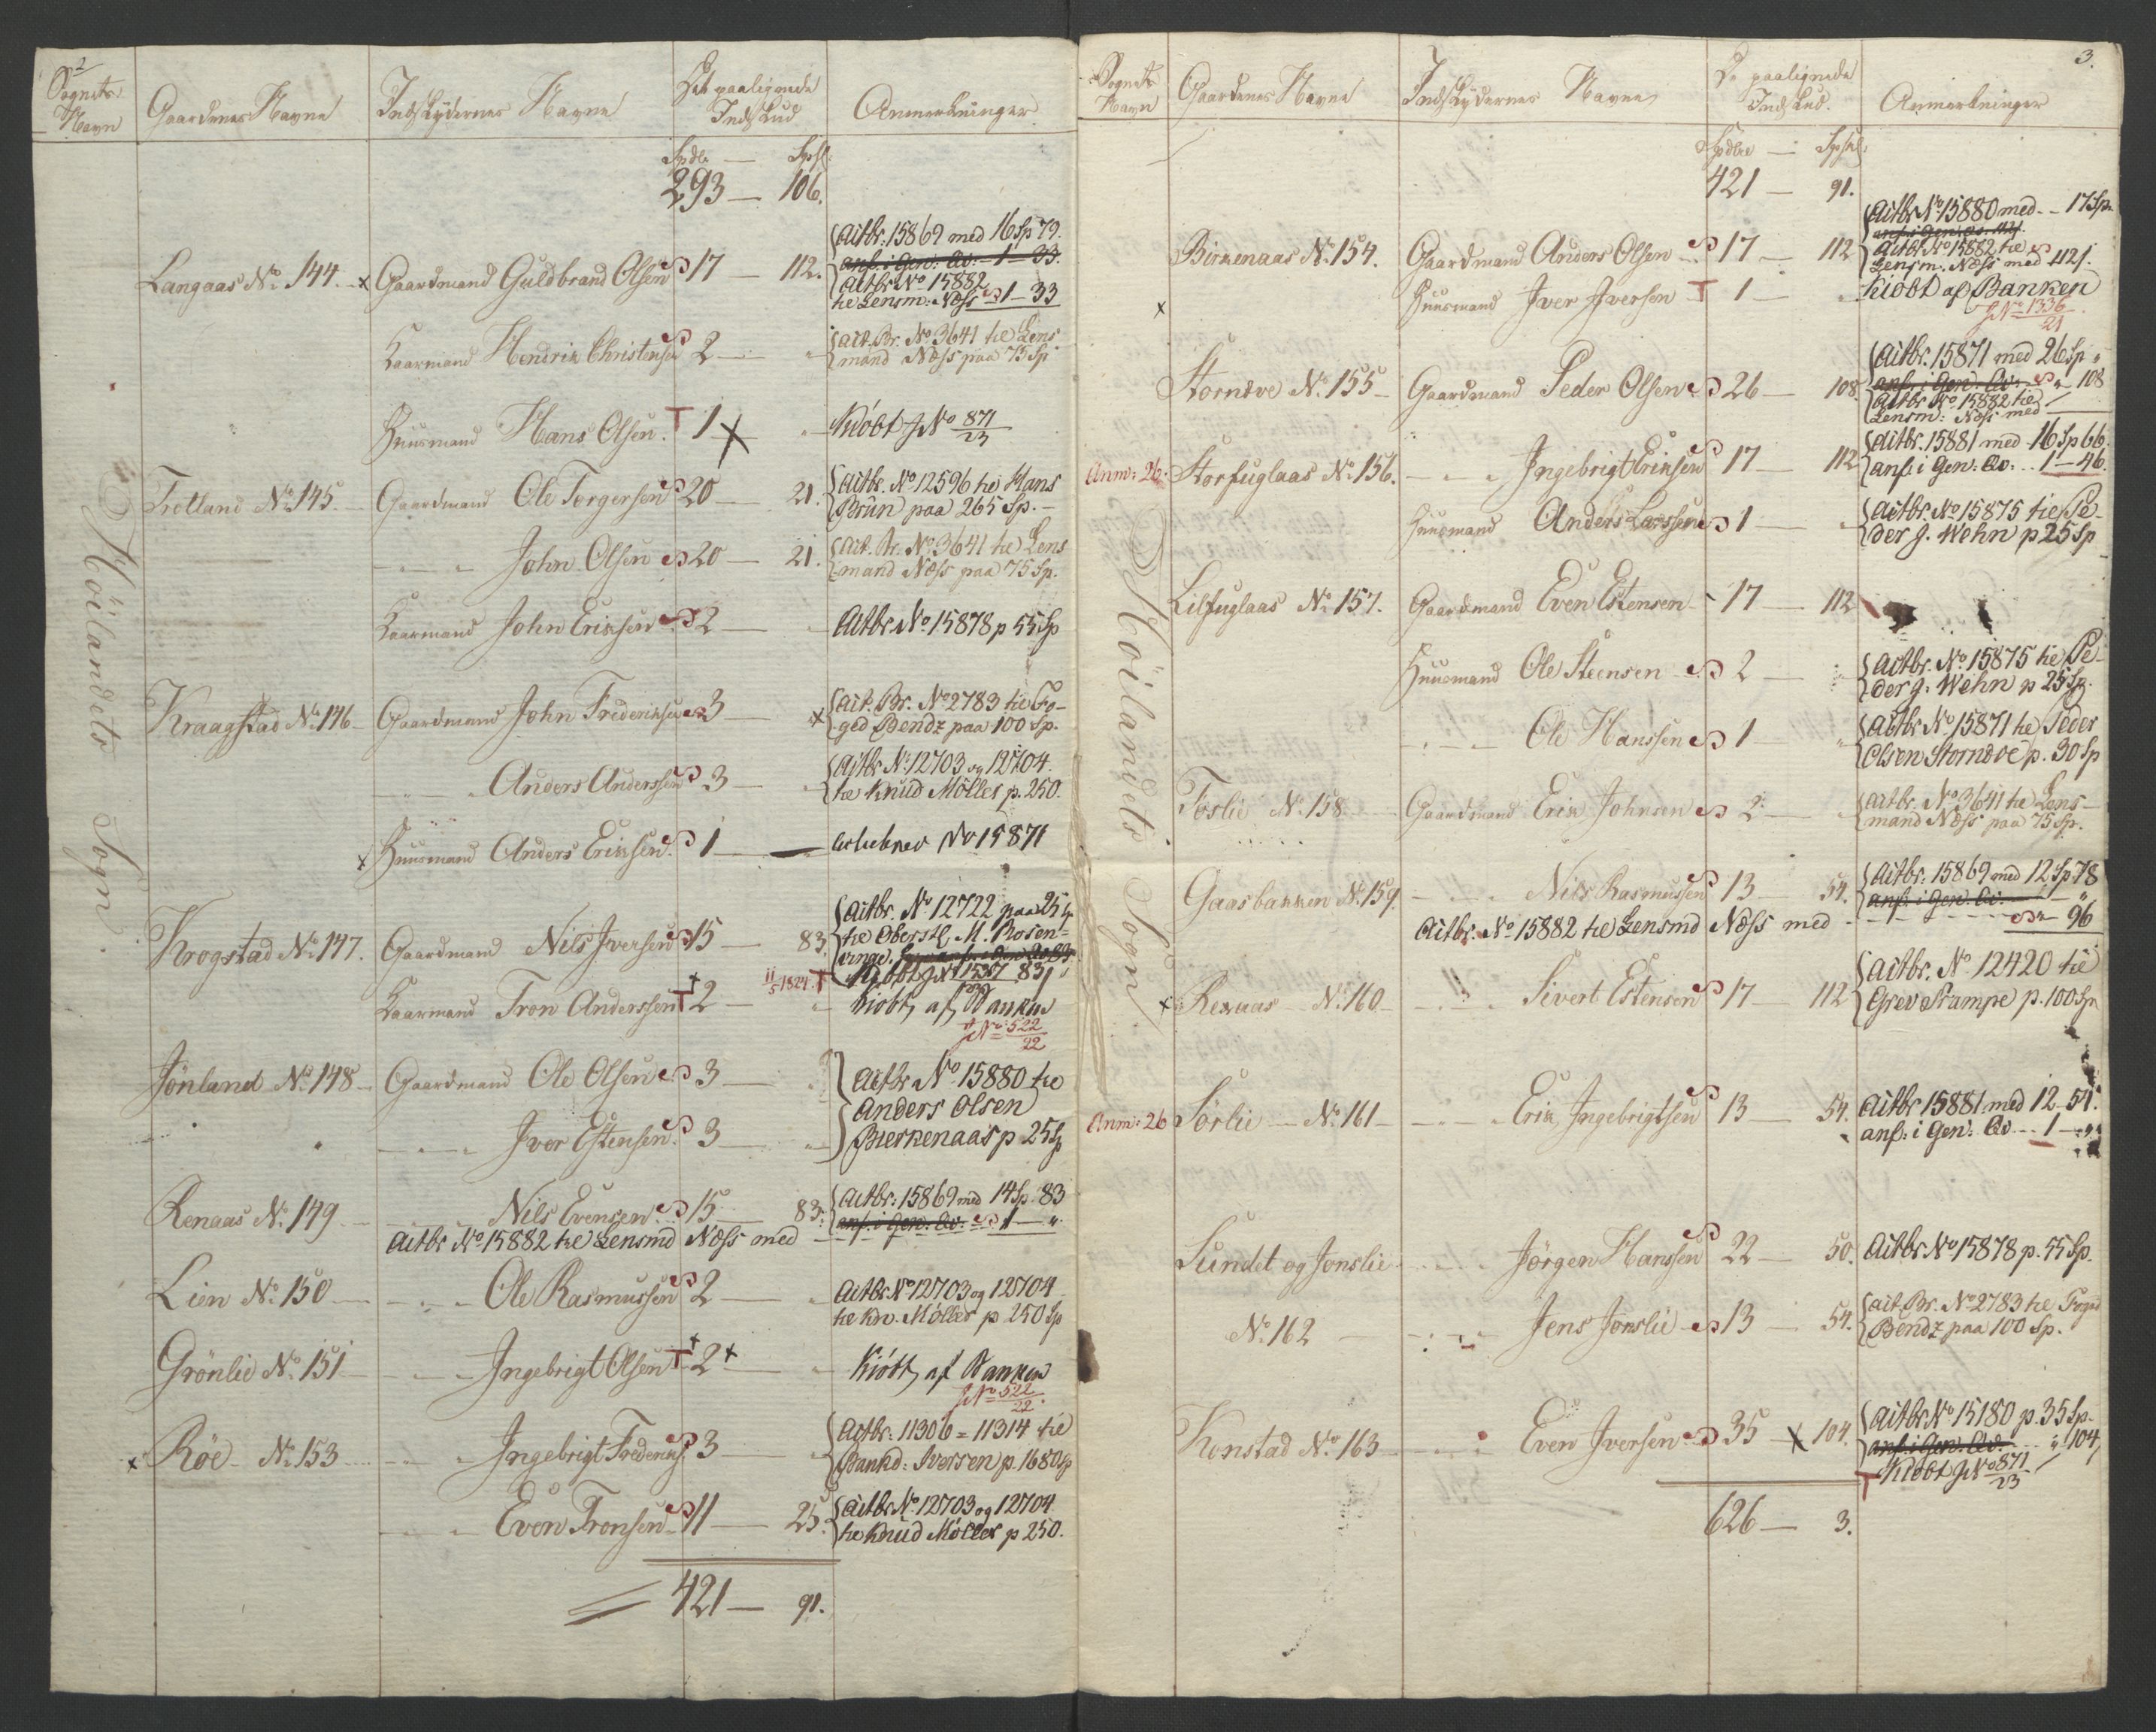 2
Sognets Navn
Gaardenes Navne
Indskydernes Navne
Det paalignede Indskud
Anmerkninger
Höilandets Sogn.
Spdlr — Spsk:
293 — 106.
Langaas No 144. x Gaardmand Guldbrand Olsen 17 — 112. Actbr: 15869 med 16 Sp 79.
anf. i Gen: Qv. — 1 — 33.
Actbr No 15882
til Lensm: Næss 1 — 33
Kaarmand Hendrik Christensen 2 — " Act. Br. No 3641 til Lens
mand Næss paa 75 Sp
Huusmand Hans Olsen. T 1 x " Kiöbt J No 871/23
Trolland No 145. Gaardmand Ole Torgersen 20 — 21. Actbr. No 12596 til Hans
Brûn paa 265 Sp. —
John Olsen 20 — 21. Act. Br. No 3641 til Lens
mand Næss paa 75 Sp.
Kaarmand John Eriksen 2 — Actbr No 15878 p 55 Sp
Kraagstad No 146 Gaardmand John Frideriksen 3 — x Act. Br. No 2783 til Fo-
ged Bendz paa 100 Sp.
Anders Anderssen 3 — Actbr No 12703 og 12704.
til Knud Möller p. 250.
x Huusmand Anders Eriksen. 1 — No 15871
Krogstad No 147. Gaardmand Nils Iversen 15 — 83. Actbr. No 12722 paa 25 Sp
til Oberstl. M. Rosen-
vinge.
11/5 1824. T Kiöbt J No 1537 83
Kaarmand Tron Anderssen T 2 — " Kiöbt af Banken
J No 522/22
Jönland No 148 Gaardmand Ole Olsen 3 — Actbr No 15880 til
Anders Olsen
Iver Estensen. 3 — Bierkenaas p 25 Sp
Renaas No 149 Nils Evensen 15 83. Actbr: 15869 med 14 Sp 83
anf. i Gen. Qv. 1 — "
Actbr No 15882 til Lensmd Næss med
Lien No 150 Ole Rasmussen 2 — Actbr No 12703 og 12704
til Kn. Möller p 250 Sp
Grönlie No 151 Ingebrigt Olsen T 2 x " Kiöbt af Banken
J No 522/22.
x Röe No 153 Ingebrigt Frederiks 3 — Actbr: 11306 = 11314 til
Bankd: Iversen p. 1680 Sp
Even Tronsen 11 — 25. Actbr No 12703 og 12704
til Knud Möller p 250.
421 — 91.
3.
Sognets Navn
Gaardenes Navne
Indskydernes Navne
De paalignede Indskud.
Anmerkninger
Höilandets Sogn
Spdlr — Spsk:
421 — 91.
Birkenaas No 154. Gaardmand Anders Olsen 17 — 112 Actbr No 15880 med — 17 Sp
Actbr No 15882 til
Lensm. Næss med 112
x Huusmand Iver Iversen T 1 — Kiöbt af Banken
J No 1336/21
Storndve No 155 Gaardmand Peder Olsen 26 — 108. Actbr: 15871 med 26 Sp "
anf. i Gen. Qv. " 108
Actbr No 15882 til
Lensm: Næss med
Anm: 26. Storfuglaas No 156. Ingebrigt Eriksen 17 — 112 Actbr: 15881 med 16 Sp 66.
anf: i Gen: Qv. 1 — 46.
Huusmand Anders Larssen 1 — Actbr. No 15875 til Pe-
der J. Wehn p 25 Sp
Lilfuglaas No 157. Gaardmand Even Estensen 17 — 112
Huusmand Ole Steensen 2 — Actbr. No 15875 til Pe-
der J. Wehn p 25 Sp.
Ole Hanssen 1 — Actbr No 15871 til Peder
Olsen Storndve p. 30 Sp
Foslie No 158 Gaardmand Erik Johnsen 2 — Actbr. No 3641 til Lens-
mand Næss paa 75 Sp.
Gaasbakken No 159. Nils Rasmussen 13 — 54. Actbr: 15869 med 12 Sp 78
anf. i Gen. Qv. 1 — "
Actbr. No 15882 til Lensmd Næss med — " 96
x Rexaas No 160 Sivert Estensen 17 — 112 Actbr. No 12420 til
Grev Trampe p. 100 Sp
Anm: 26 Sörlie No 161 Erik Ingebrigtsen 13 — 54. Actbr 15881 med 12 - 54.
anf: i Gen: Qv 1 — "
Sundet og Jonslie Jörgen Hanssen 22 — 50. Actbr No 15878 p. 55 Sp.
No 162 Jens Jonslie 13 — 54. Act. Br. No 2783 til Foged
Bendz paa 100 Sp.
Konstad No 163 Even Iversen 35 x 104. Actbr No 15180 p. 35 Sp
anf. i Gen. Qv. " 104
T Kiöbt J No 871/23
626 — 3.